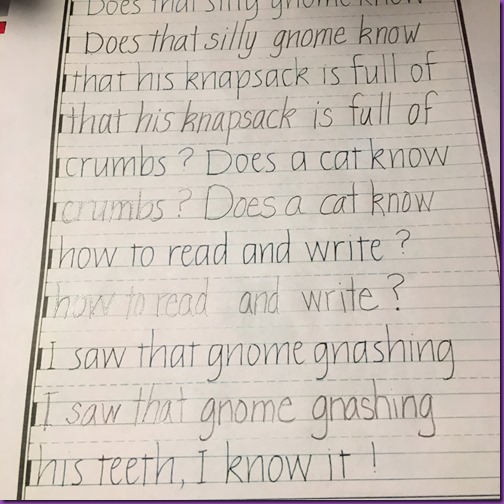 Does that silly gnome know
Does that silly gnome know
that his knapsack is full of
that his knapsack is full of
crumbs? Does a cat know
crumbs? Does a cat know
how to read and write?
how to read and write?
I saw that gnome gnashing
I saw that gnome gnashing
his teeth, I know it!